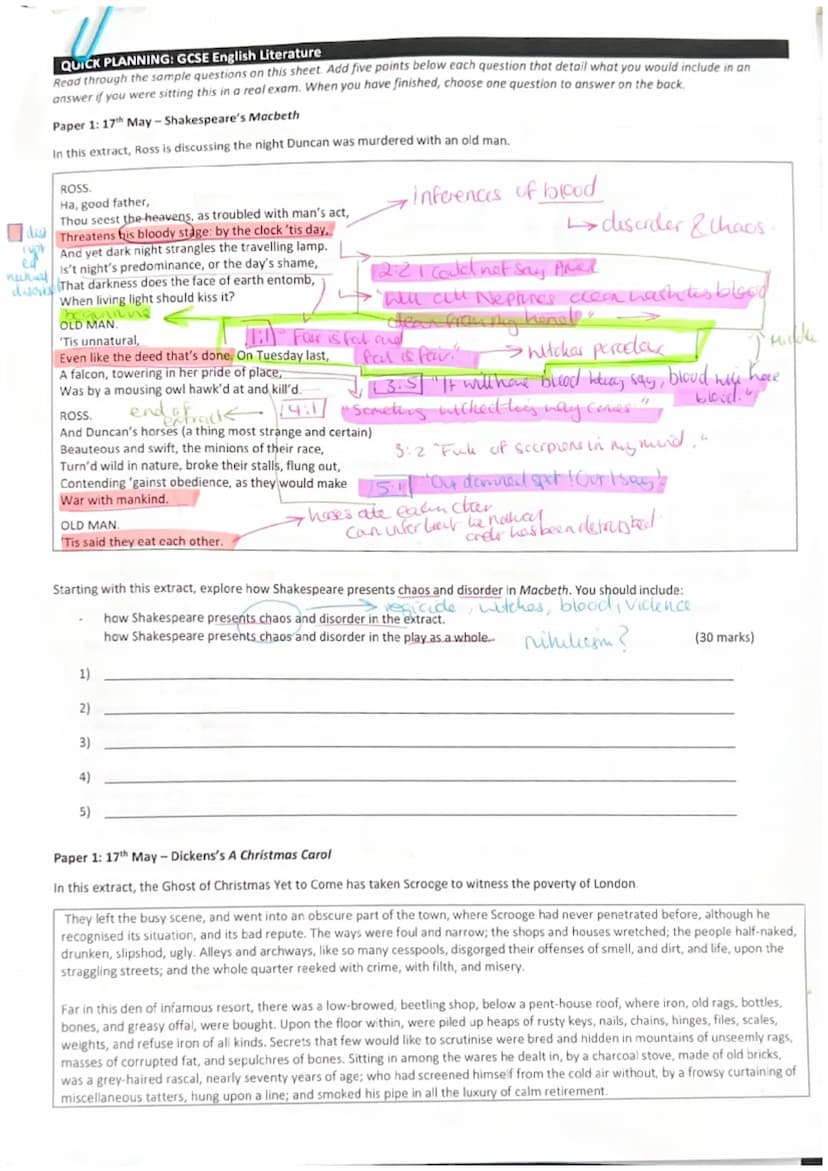 QUICK PLANNING: GCSE English Literature
Read through the sample questions on this sheet. Add five points below each question that detail what you would include in an
answer if you were sitting this in a real exam. When you have finished, choose one question to answer on the back.
Paper 1: 17th May – Shakespeare's Macbeth
In this extract, Ross is discussing the night Duncan was murdered with an old man.
ROSS.
Ha, good father,
Thou seest the heavens, as troubled with man's act,
Threatens his bloody stage: by the clock 'tis day,
And yet dark night strangles the travelling lamp.
Is't night's predominance, or the day's shame,
That darkness does the face of earth entomb,
When living light should kiss it?
OLD MAN.
'Tis unnatural,
Even like the deed that's done. On Tuesday last,
A falcon, towering in her pride of place,
Was by a mousing owl hawk'd at and kill'd.
ROSS.
And Duncan's horses (a thing most strange and certain)
Beauteous and swift, the minions of their race,
Turn'd wild in nature, broke their stalls, flung out,
Contending 'gainst obedience, as they would make
War with mankind.
OLD MAN.
'Tis said they eat each other.
inferences of blood
disorder & chaos.
2:2 I could not say Amen
"Will all Neptunes ocean wash this blood
clean from my hand"
beginning
1:1 "Fair is foul and
foul is fair." witches paradox
middle
3:5 "It will have blood they say, blood will have
blood."
end of
extract
4:1 "Something wicked this way comes"
3:2 "Full of scorpions in my mind."
5:1 'Out damned spot! Out I say'
horses ate each other
can infer back to natural
order has been disturbed
Starting with this extract, explore how Shakespeare presents chaos and disorder in Macbeth. You should include:
regicide, witches, blood, violence
- how Shakespeare presents chaos and disorder in the extract.
how Shakespeare presents chaos and disorder in the play as a whole. nihilism? (30 marks)
1)
2)
3)
4)
5)
Paper 1: 17th May – Dickens's A Christmas Carol
In this extract, the Ghost of Christmas Yet to Come has taken Scrooge to witness the poverty of London.
They left the busy scene, and went into an obscure part of the town, where Scrooge had never penetrated before, although he
recognised its situation, and its bad repute. The ways were foul and narrow; the shops and houses wretched; the people half-naked,
drunken, slipshod, ugly. Alleys and archways, like so many cesspools, disgorged their offenses of smell, and dirt, and life, upon the
straggling streets; and the whole quarter reeked with crime, with filth, and misery.
Far in this den of infamous resort, there was a low-browed, beetling shop, below a pent-house roof, where iron, old rags, bottles,
bones, and greasy offal, were bought. Upon the floor within, were piled up heaps of rusty keys, nails, chains, hinges, files, scales,
weights, and refuse iron of all kinds. Secrets that few would like to scrutinise were bred and hidden in mountains of unseemly rags,
masses of corrupted fat, and sepulchres of bones. Sitting in among the wares he dealt in, by a charcoal stove, made of old bricks,
was a grey-haired rascal, nearly seventy years of age; who had screened himself from the cold air without, by a frowsy curtaining of
miscellaneous tatters, hung upon a line; and smoked his pipe in all the luxury of calm retirement.